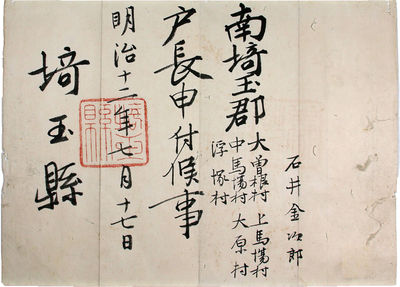 石井金次郎
南埼玉郡
大曽根村 上馬場村
中馬場村 大原村
浮塚村
戸長申付候事
明治十二年七月十七日
埼玉縣